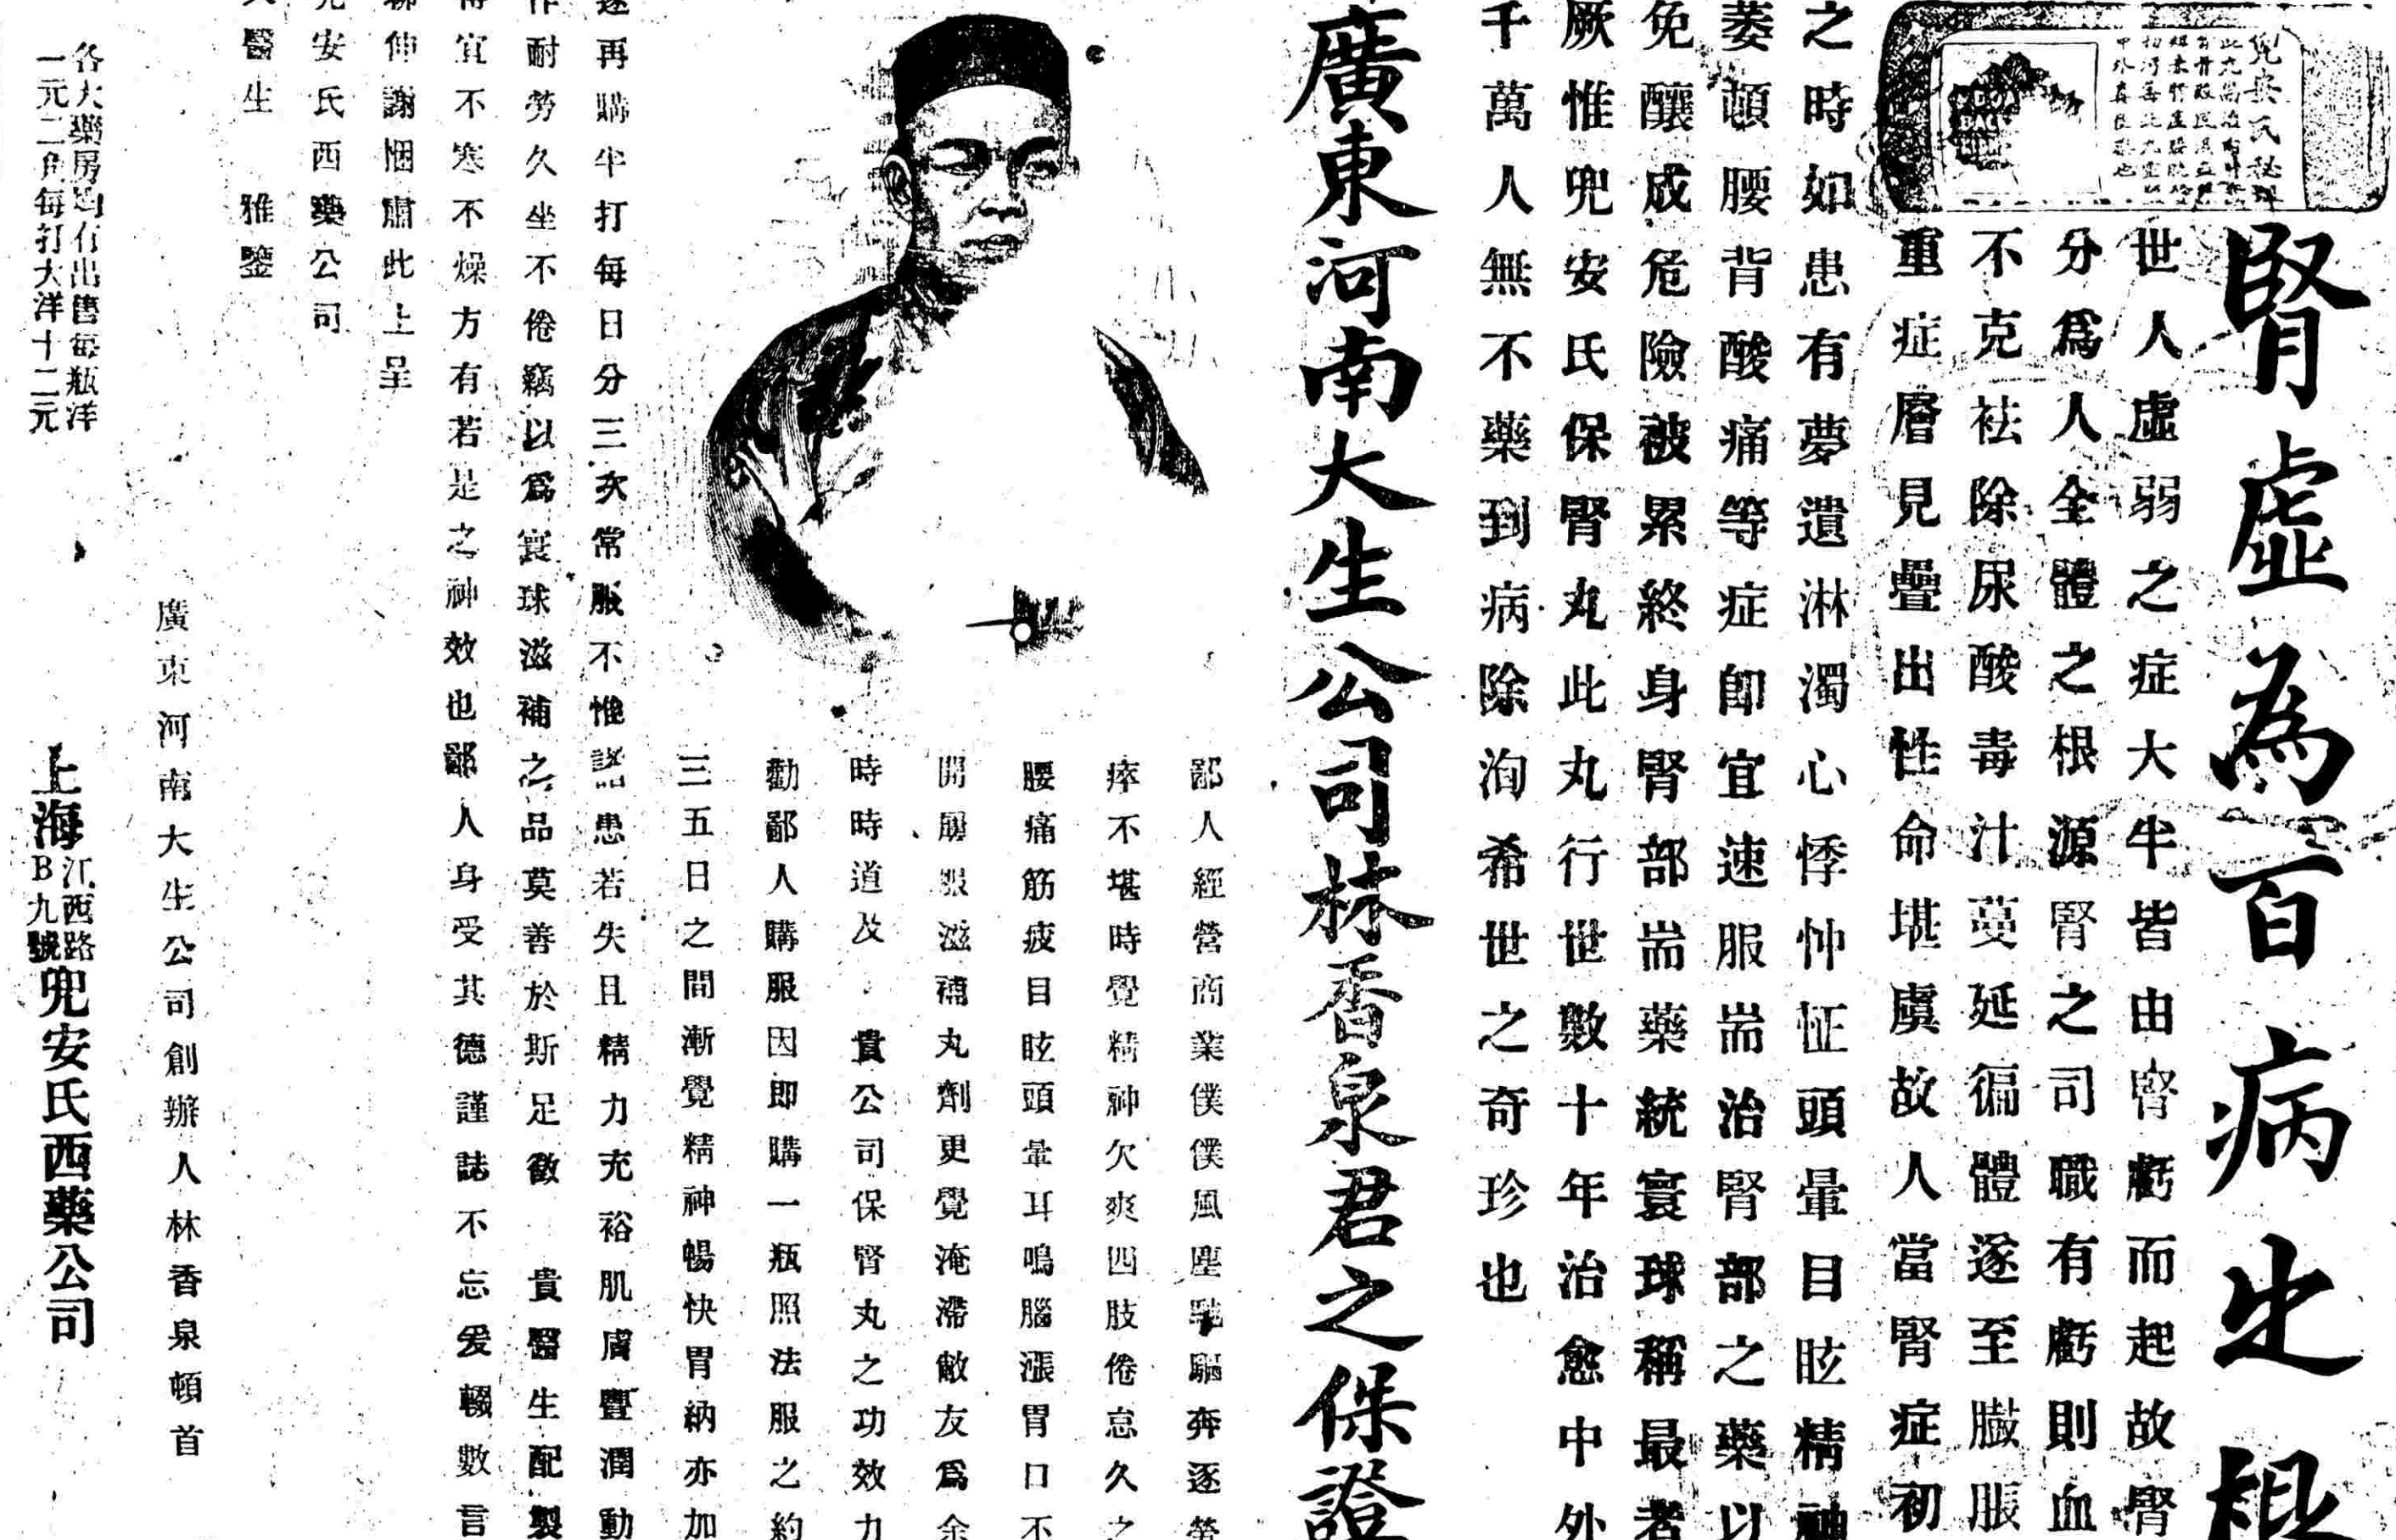 兜安氏秘
腎虛為百病之根
世人虛弱之症大半皆由腎虧而起故腎
分爲人全體之根源腎之司職有虧則血
不克袪除尿酸毒汁蔓延徧體遂至臌脹
重症層見疊出性命堪虞故人當腎症初
之時如患有夢遺淋濁心悸忡怔頭暈目眩精神
萎頓腰背酸痛等症卽宜速服耑治腎部之藥以
免釀成危險被累終身腎部耑藥統寰球稱最者
厥惟兜安氏保腎丸此丸行世數十年治愈中外
千萬人無不藥到病除洵希世之奇珍也
廣東河南大生公司林香泉君之保證
鄙人經營商業僕僕風塵馳驅奔逐勞
瘁不堪時覺精神欠爽四肢倦怠久之
腰痛筋疲目眩頭暈耳鳴腦漲胃口不
開屢服滋補丸劑更覺淹滯敝友爲余
時時道及 貴公司保腎丸之功效力
勸鄙人購服因即購一瓶照法服之約
三五日之間漸覺精神暢快胃納亦加
遂再購半打每日分三次常服不惟諸患若失且精力充裕肌膚豐潤動
作耐勞久坐不倦竊以爲寰球滋補之品莫善於斯足徵 貴醫生配製
得宜不寒不燥方有若是之神效也鄙人身受其德謹誌不忘爰輟數言
聊伸謝悃肅此上呈
兜安氏西藥公司
大醫生 雅鑒
廣東河南大生公司創辦人林香泉頓首
各大藥房均有出售每瓶洋
一元二角每打大洋十二元
上海江西路B九號兜安氏西藥公司